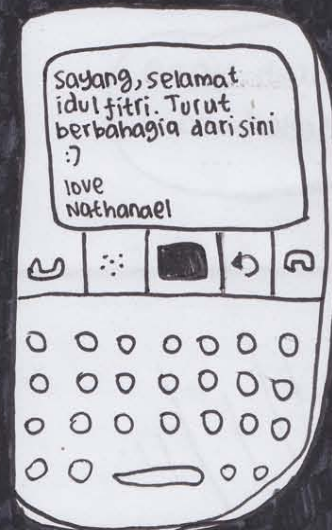 sayang, selamat
idul fitri. Turut
berbahagia dari sini
:)
love
Nathanael